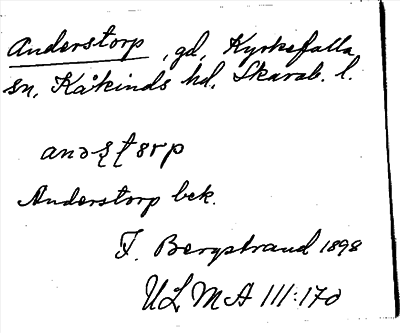 Anderstorp, gd, Kyrkefalla
sn, Kåkinds hd, Skarab. l.
Anderstorp bek.
F. Bergstrand 1898
ULMA 111:170